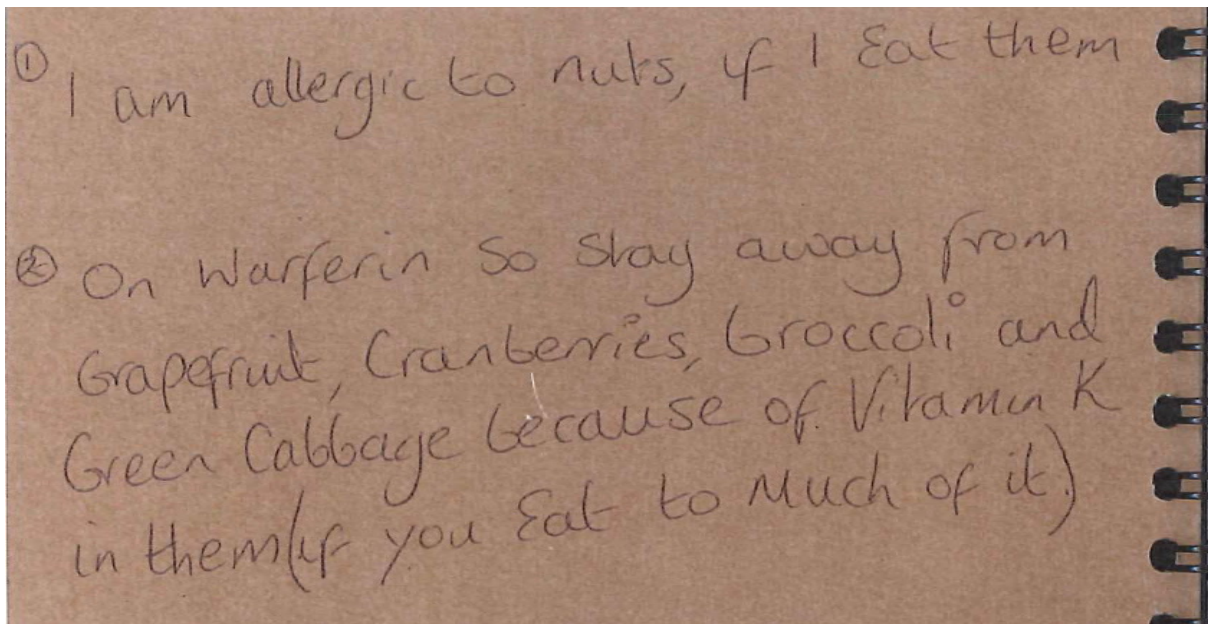 ① I am allergic to nuts, if I Eat them
② On Warferin So Stay away from
Grapefruit, Cranberries, broccoli and
Green Cabbage because of Vitamin K
in them (if you Eat to Much of it.)